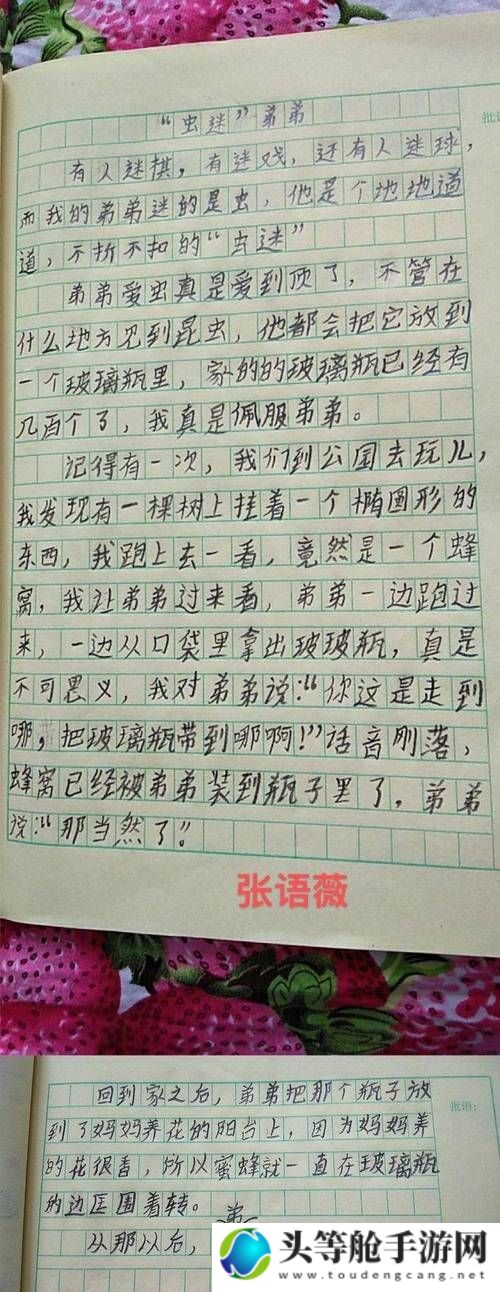 批语
“虫迷”弟弟
有人迷棋，有迷戏，还有人迷球，
而我的弟弟迷的是虫，他是个地地道
道，不折不扣的“虫迷”
弟弟爱虫真是爱到顶了，不管在
什么地方见到昆虫，他都会把它放到
一个玻璃瓶里，家的的玻璃瓶已经有
几百个了，我真是佩服弟弟。
记得有一次，我们到公园去玩儿，
我发现有一棵树上挂着一个椭圆形的
东西，我跑上去一看，竟然是一个蜂
窝，我让弟弟过来看，弟弟一边跑过
来，一边从口袋里拿出玻玻瓶，真是
不可思义，我对弟弟说：“你这是走到
哪，把玻璃瓶带到哪啊！”话音刚落，
蜂窝已经被弟弟装到瓶子里了，弟弟
说：“那当然了！”
张语薇
批语：
回到家之后，弟弟把那个瓶子放
到了妈妈养花的阳台上，因为妈妈养
的花很香，所以蜜蜂就一直在玻璃瓶
的边匡围着转。
从那以后，弟
头等舱手游网
www.toudengcang.net